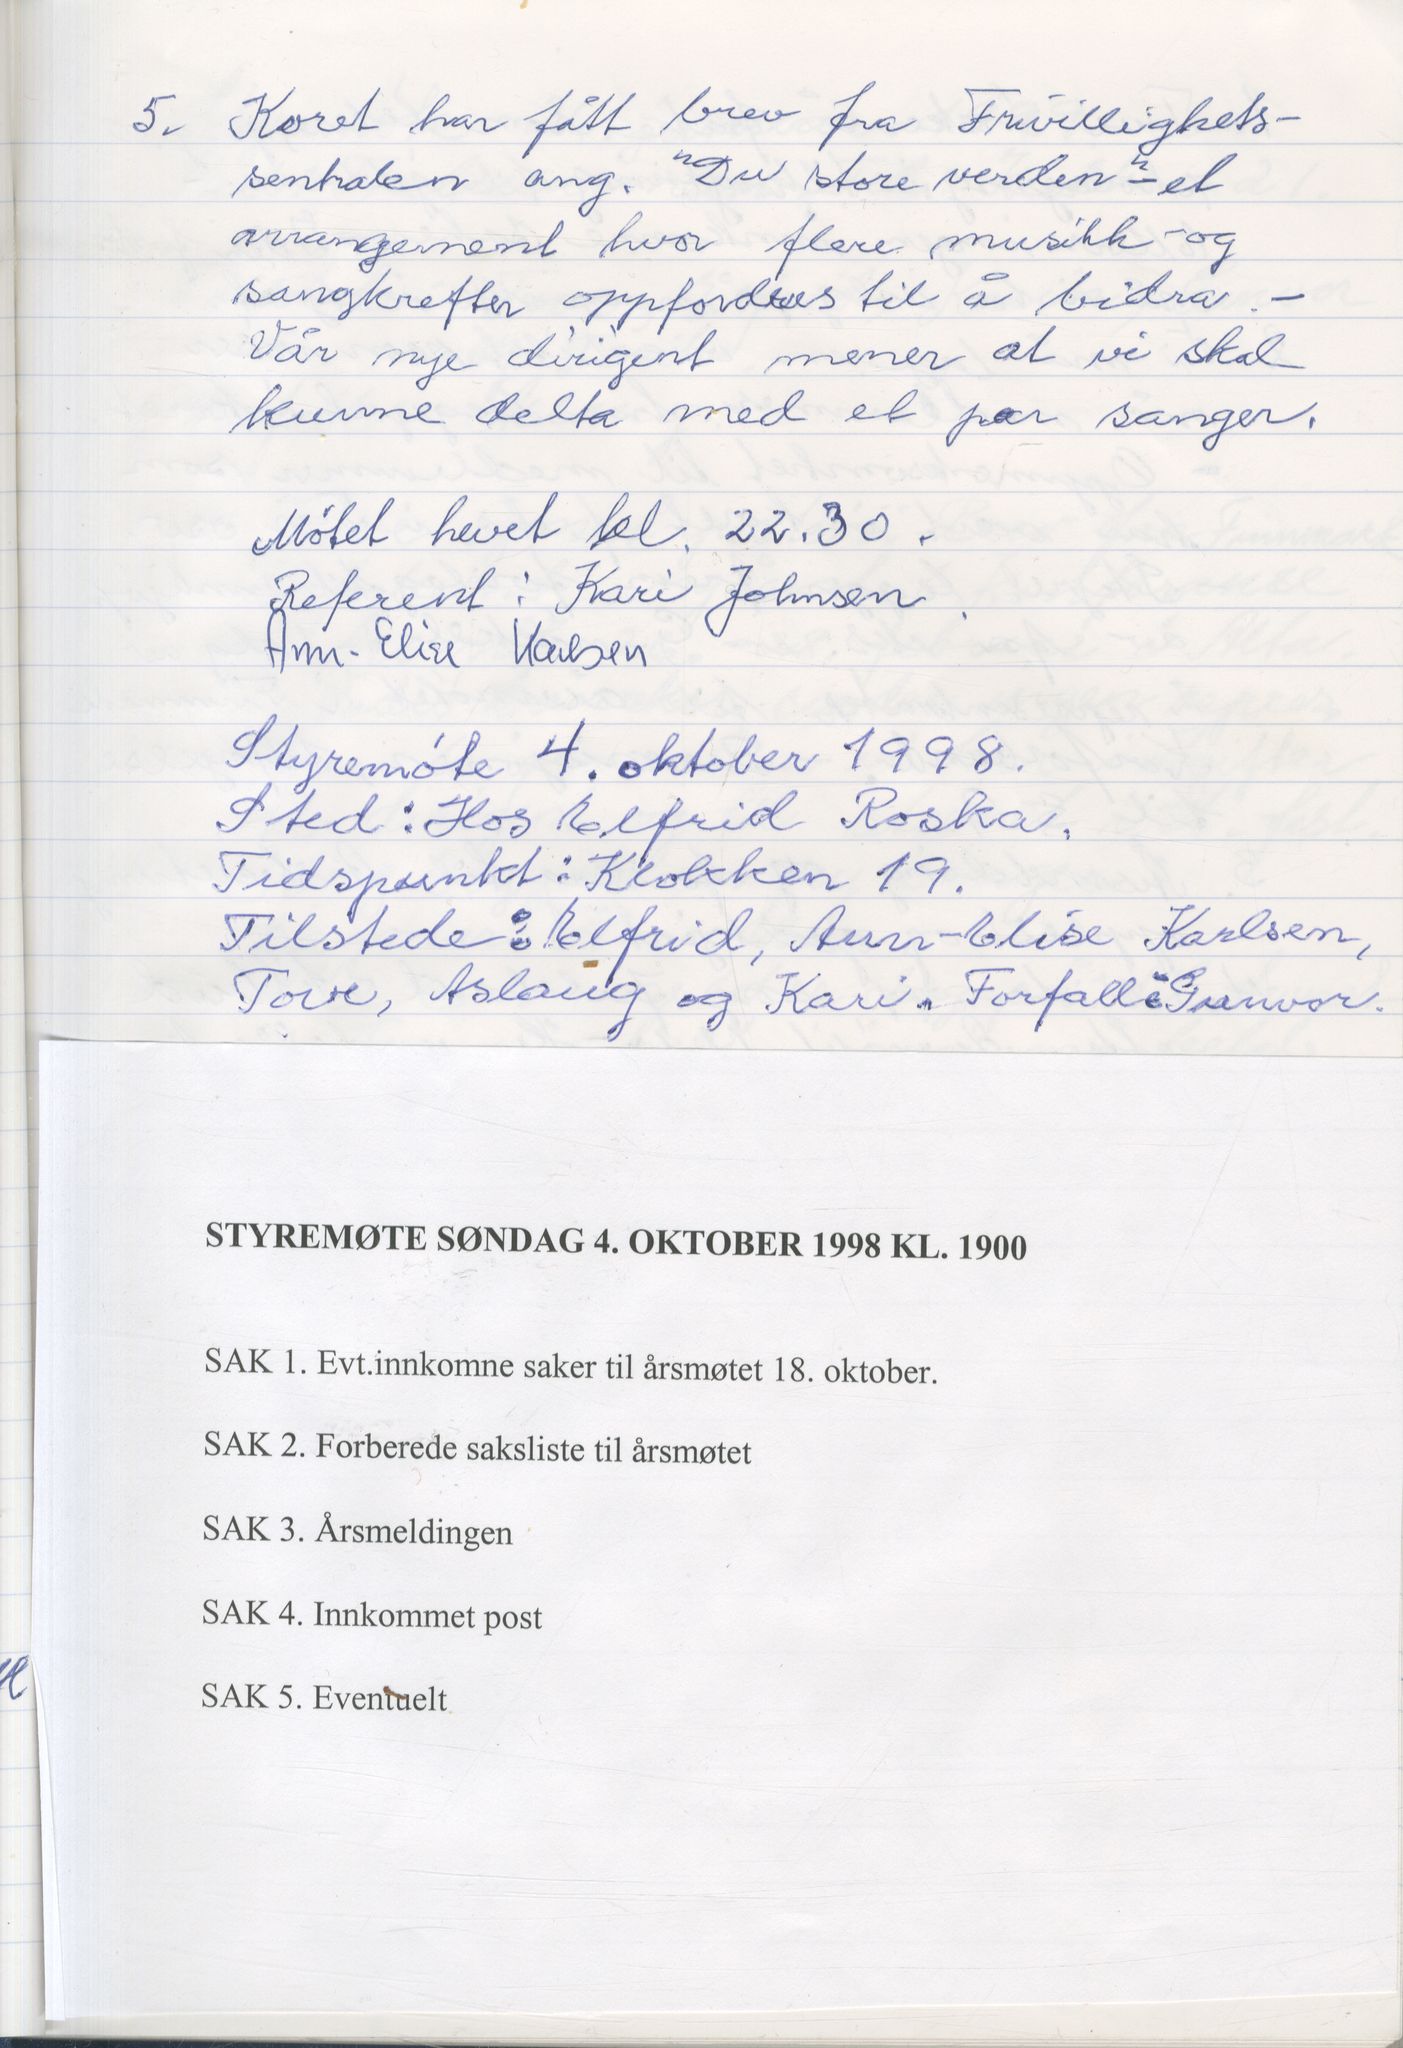 5. Koret har fått brev fra Frivillighets-
sentralen ang. "Du store verden" - et
arrangement hvor flere musikk- og
sangkrefter oppfordres til å bidra. -
Vår nye dirigent mener at vi skal
kunne delta med et par sanger.
Møtet hevet kl. 22.30.
Referent: Kari Johnsen.
Ann-Elise Karlsen
Styremøte 4. oktober 1998.
Sted: Hos Elfrid Roska.
Tidspunkt: Klokken 19.
Tilstede: Elfrid, Ann-Elise Karlsen,
Tove, Aslaug og Kari. Forfall: Gunvor.
STYREMØTE SØNDAG 4. OKTOBER 1998 KL. 1900
SAK 1. Evt.innkomne saker til årsmøtet 18. oktober.
SAK 2. Forberede saksliste til årsmøtet
SAK 3. Årsmeldingen
SAK 4. Innkommet post
SAK 5. Eventuelt